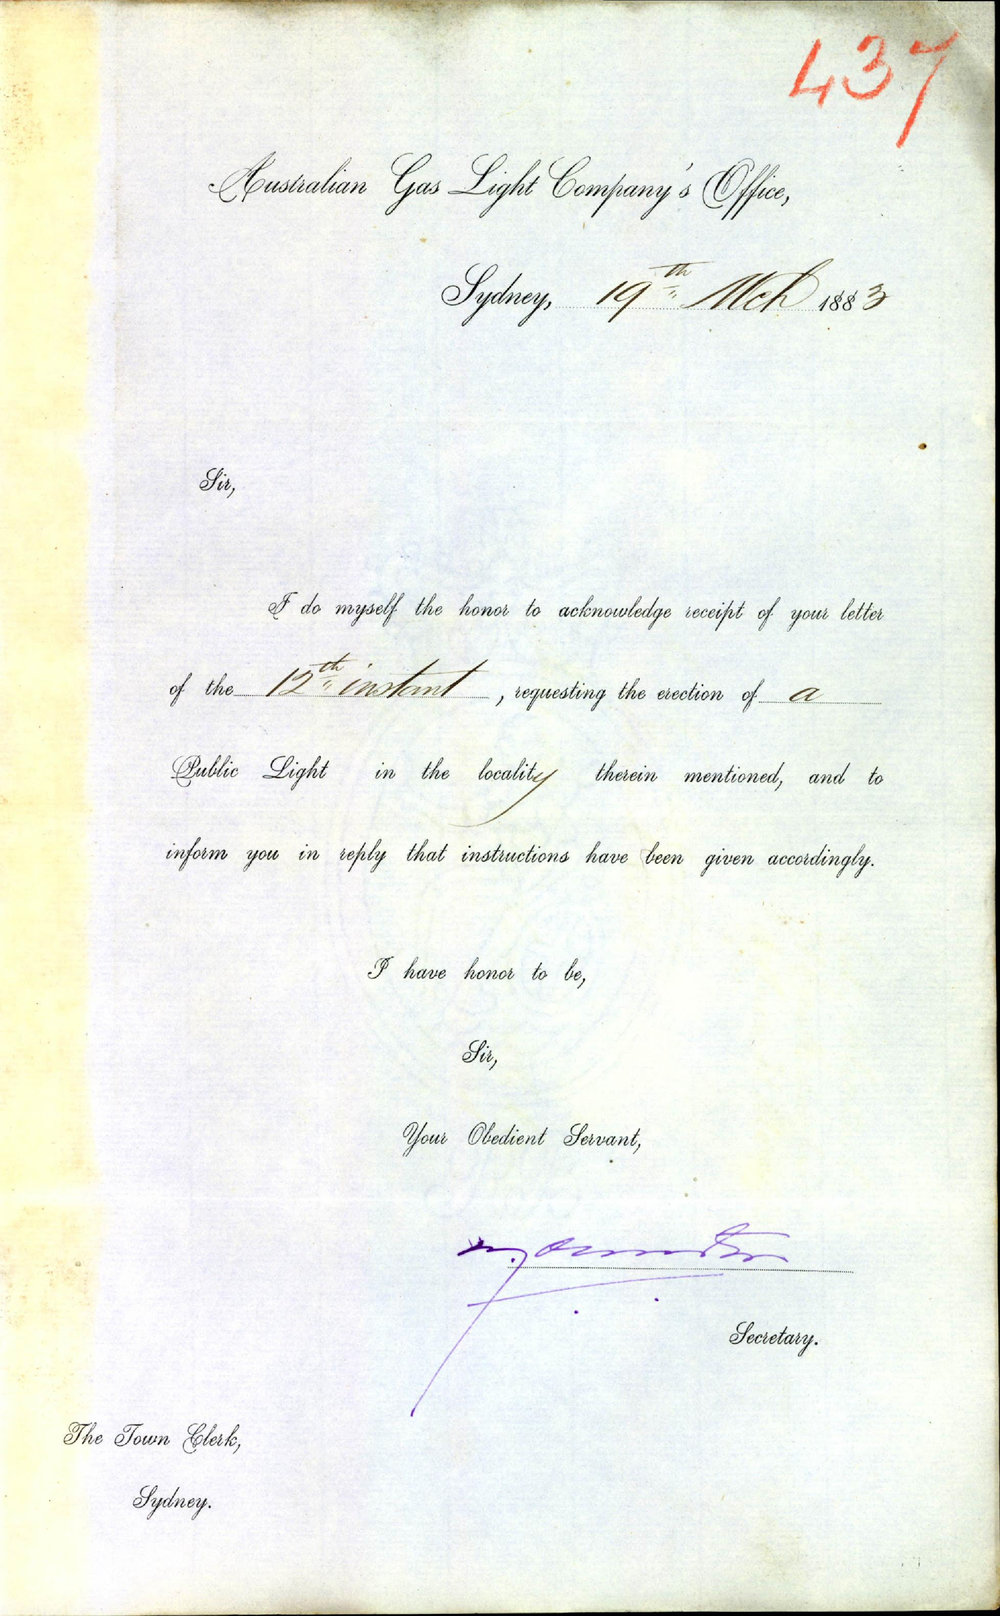 437
Australian Gas Light Company's Office,
Sydney, 19th Mch 1883
Sir,
I do myself the honor to acknowledge receipt of your letter
of the 12th instant, requesting the erection of a
Public Light in the locality therein mentioned, and to
inform you in reply that instructions have been given accordingly.
I have honor to be,
Sir,
Your Obedient Servant,
Secretary.
The Town Clerk,
Sydney.